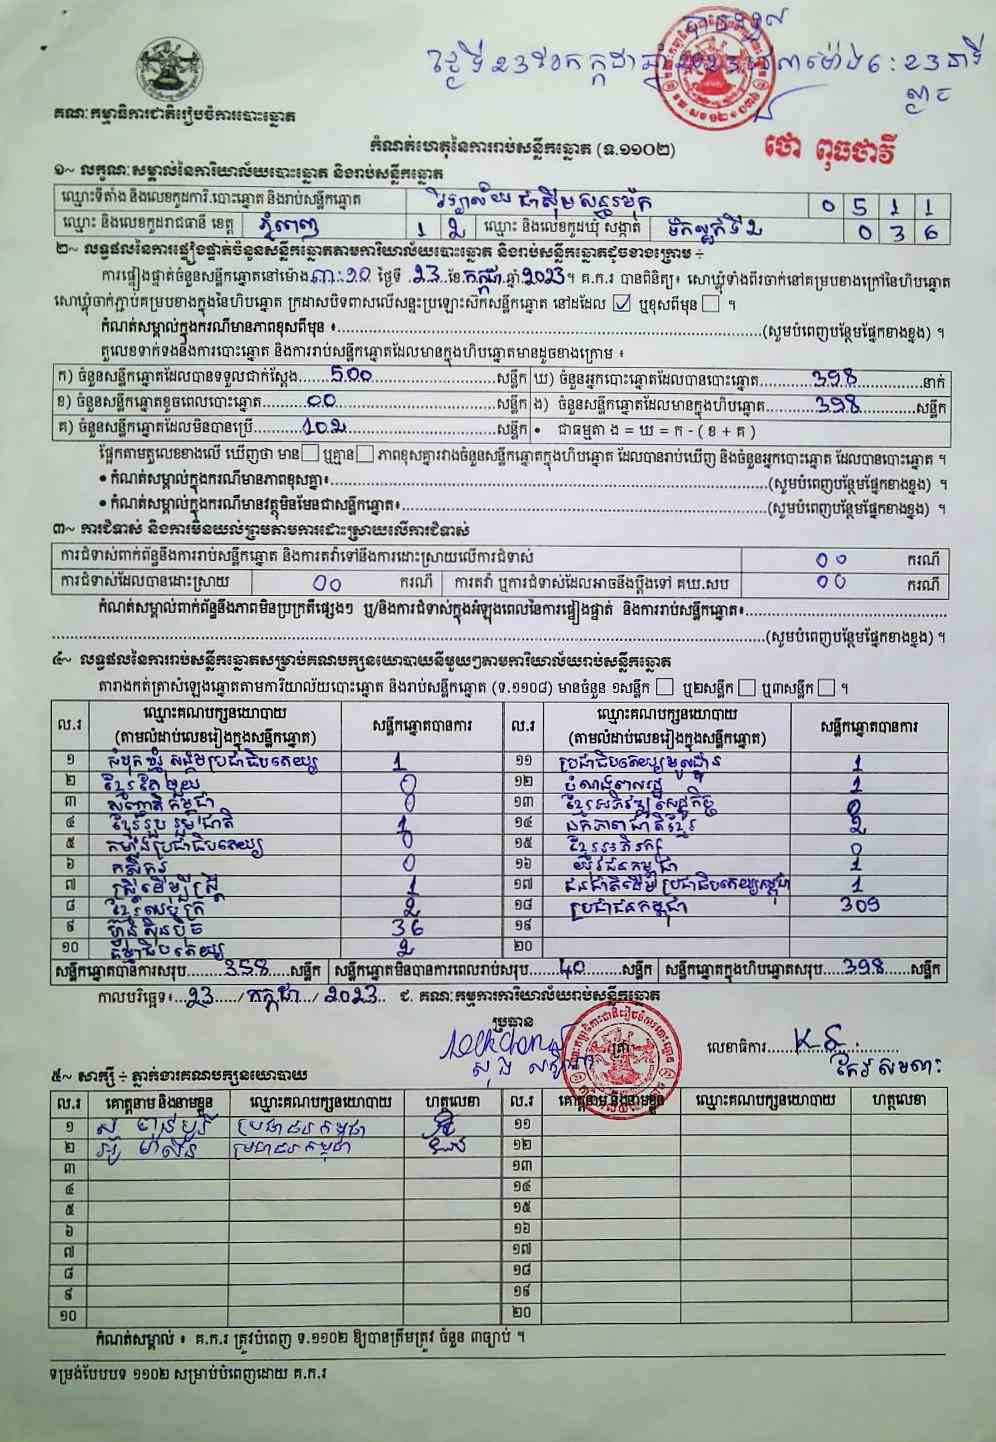 ថ្ងៃទី ២៣ ខែ កក្កដា ឆ្នាំ ២០២៣ វេលាម៉ោង ៦:៥៣ នាទី
ល្ងាច
គណៈកម្មាធិការជាតិរៀបចំការបោះឆ្នោត
កំណត់ហេតុនៃការរាប់សន្លឹកឆ្នោត (ទ.១១០២)
ថោ ពុធថាវី
១~ លក្ខណៈសម្គាល់នៃការិយាល័យបោះឆ្នោត និងរាប់សន្លឹកឆ្នោត
ឈ្មោះទីតាំង និងលេខកូដការិ.បោះឆ្នោត និងរាប់សន្លឹកឆ្នោត វិទ្យាល័យ ជាស៊ីម សន្ធរម៉ុក 0 5 1 1
ឈ្មោះ និងលេខកូដរាជធានី ខេត្ត ភ្នំពេញ 1 2 ឈ្មោះ និងលេខកូដឃុំ សង្កាត់ ទឹកល្អក់ទី២ 0 3 6
២~ លទ្ធផលនៃការផ្ទៀងផ្ទាត់ចំនួនសន្លឹកឆ្នោតតាមការិយាល័យបោះឆ្នោត និងរាប់សន្លឹកឆ្នោតដូចខាងក្រោម ÷
ការផ្ទៀងផ្ទាត់ចំនួនសន្លឹកឆ្នោតនៅម៉ោង ៣:២០ ថ្ងៃទី 23 ខែ កក្កដា ឆ្នាំ 2023 ។ គ.ក.រ បានពិនិត្យ៖ សោឃ្លុំទាំងពីរចាក់នៅគម្របខាងក្រៅនៃហិបឆ្នោត
សោឃ្លុំចាក់ភ្ជាប់គម្របខាងក្នុងនៃហិបឆ្នោត ក្រដាសបិទពាសលើសន្ទះប្រឡោះស៊កសន្លឹកឆ្នោត នៅដដែល ☑ ឬខុសពីមុន ☐ ។
កំណត់សម្គាល់ក្នុងករណីមានភាពខុសពីមុន ៖ (សូមបំពេញបន្ថែមផ្នែកខាងខ្នង) ។
តួលេខទាក់ទងនឹងការបោះឆ្នោត និងការរាប់សន្លឹកឆ្នោតដែលមានក្នុងហិបឆ្នោតមានដូចខាងក្រោម ៖
ក) ចំនួនសន្លឹកឆ្នោតដែលបានទទួលជាក់ស្តែង 500 សន្លឹក ឃ) ចំនួនអ្នកបោះឆ្នោតដែលបានបោះឆ្នោត 398 នាក់
ខ) ចំនួនសន្លឹកឆ្នោតខូចពេលបោះឆ្នោត 00 សន្លឹក ង) ចំនួនសន្លឹកឆ្នោតដែលមានក្នុងហិបឆ្នោត 398 សន្លឹក
គ) ចំនួនសន្លឹកឆ្នោតដែលមិនបានប្រើ 102 សន្លឹក • ជាធម្មតា ង = ឃ = ក - ( ខ + គ )
ផ្អែកតាមតួលេខខាងលើ ឃើញថា មាន ☐ ឬគ្មាន ☐ ភាពខុសគ្នារវាងចំនួនសន្លឹកឆ្នោតក្នុងហិបឆ្នោត ដែលបានរាប់ឃើញ និងចំនួនអ្នកបោះឆ្នោត ដែលបានបោះឆ្នោត ។
• កំណត់សម្គាល់ក្នុងករណីមានភាពខុសគ្នា៖ (សូមបំពេញបន្ថែមផ្នែកខាងខ្នង) ។
• កំណត់សម្គាល់ក្នុងករណីមានវត្ថុមិនមែនជាសន្លឹកឆ្នោត៖ (សូមបំពេញបន្ថែមផ្នែកខាងខ្នង) ។
៣~ ការជំទាស់ និងការមិនយល់ព្រមតាមការដោះស្រាយលើការជំទាស់
ការជំទាស់ពាក់ព័ន្ធនឹងការរាប់សន្លឹកឆ្នោត និងការតវ៉ាទៅនឹងការដោះស្រាយលើការជំទាស់ 00 ករណី
ការជំទាស់ដែលបានដោះស្រាយ 00 ករណី ការតវ៉ា ឬការជំទាស់ដែលអាចនឹងប្តឹងទៅ គឃ.សប 00 ករណី
កំណត់សម្គាល់ពាក់ព័ន្ធនឹងភាពមិនប្រក្រតីផ្សេងៗ ឬ/និងការជំទាស់ក្នុងអំឡុងពេលនៃការផ្ទៀងផ្ទាត់ និងការរាប់សន្លឹកឆ្នោត៖
(សូមបំពេញបន្ថែមផ្នែកខាងខ្នង) ។
៤~ លទ្ធផលនៃការរាប់សន្លឹកឆ្នោតសម្រាប់គណបក្សនយោបាយនីមួយៗតាមការិយាល័យរាប់សន្លឹកឆ្នោត
តារាងកត់ត្រាសំឡេងឆ្នោតតាមការិយាល័យបោះឆ្នោត និងរាប់សន្លឹកឆ្នោត (ទ.១១០៨) មានចំនួន ១សន្លឹក ☐ ឬ២សន្លឹក ☐ ឬ៣សន្លឹក ☐ ។
ល.រ ឈ្មោះគណបក្សនយោបាយ (តាមលំដាប់លេខរៀងក្នុងសន្លឹកឆ្នោត) សន្លឹកឆ្នោតបានការ ល.រ ឈ្មោះគណបក្សនយោបាយ (តាមលំដាប់លេខរៀងក្នុងសន្លឹកឆ្នោត) សន្លឹកឆ្នោតបានការ
១ សំបុកឃ្មុំ សង្គមប្រជាធិបតេយ្យ 1 ១១ ប្រជាធិបតេយ្យមូលដ្ឋាន 1
២ ខ្មែរតែមួយ 0 ១២ បំណងពលរដ្ឋ 1
៣ សញ្ជាតិកម្ពុជា 0 ១៣ ខ្មែរអភិវឌ្ឍសេដ្ឋកិច្ច 0
៤ ខ្មែររួបរួមជាតិ 1 ១៤ ឯកភាពជាតិខ្មែរ 2
៥ កម្លាំងប្រជាធិបតេយ្យ 0 ១៥ ខ្មែរអភិរក្ស 0
៦ កសិករ 0 ១៦ យុវជនកម្ពុជា 1
៧ ស្ត្រីដើម្បីស្ត្រី 1 ១៧ ជនជាតិដើមប្រជាធិបតេយ្យកម្ពុជា 1
៨ ខ្មែរឈប់ក្រ 2 ១៨ ប្រជាជនកម្ពុជា 309
៩ ហ៊្វុនស៊ិនប៉ិច 36 ១៩
១០ ធម្មាធិបតេយ្យ 2 ២០
សន្លឹកឆ្នោតបានការសរុប 358 សន្លឹក សន្លឹកឆ្នោតមិនបានការពេលរាប់សរុប 40 សន្លឹក សន្លឹកឆ្នោតក្នុងហិបឆ្នោតសរុប 398 សន្លឹក
កាលបរិច្ឆេទ៖ 23 / កក្កដា / 2023 ជ. គណៈកម្មការការិយាល័យរាប់សន្លឹកឆ្នោត
ប្រធាន ត្រា លេខាធិការ
៥~ សាក្សី ÷ ភ្នាក់ងារគណបក្សនយោបាយ
ល.រ គោត្តនាម និងនាមខ្លួន ឈ្មោះគណបក្សនយោបាយ ហត្ថលេខា ល.រ គោត្តនាម និងនាមខ្លួន ឈ្មោះគណបក្សនយោបាយ ហត្ថលេខា
១ ប្រជាជនកម្ពុជា ១១
២ ប្រជាជនកម្ពុជា ១២
៣ ១៣
៤ ១៤
៥ ១៥
៦ ១៦
៧ ១៧
៨ ១៨
៩ ១៩
១០ ២០
កំណត់សម្គាល់ ៖ គ.ក.រ ត្រូវបំពេញ ទ.១១០២ ឱ្យបានត្រឹមត្រូវ ចំនួន ៣ច្បាប់ ។
ទម្រង់បែបបទ ១១០២ សម្រាប់បំពេញដោយ គ.ក.រ